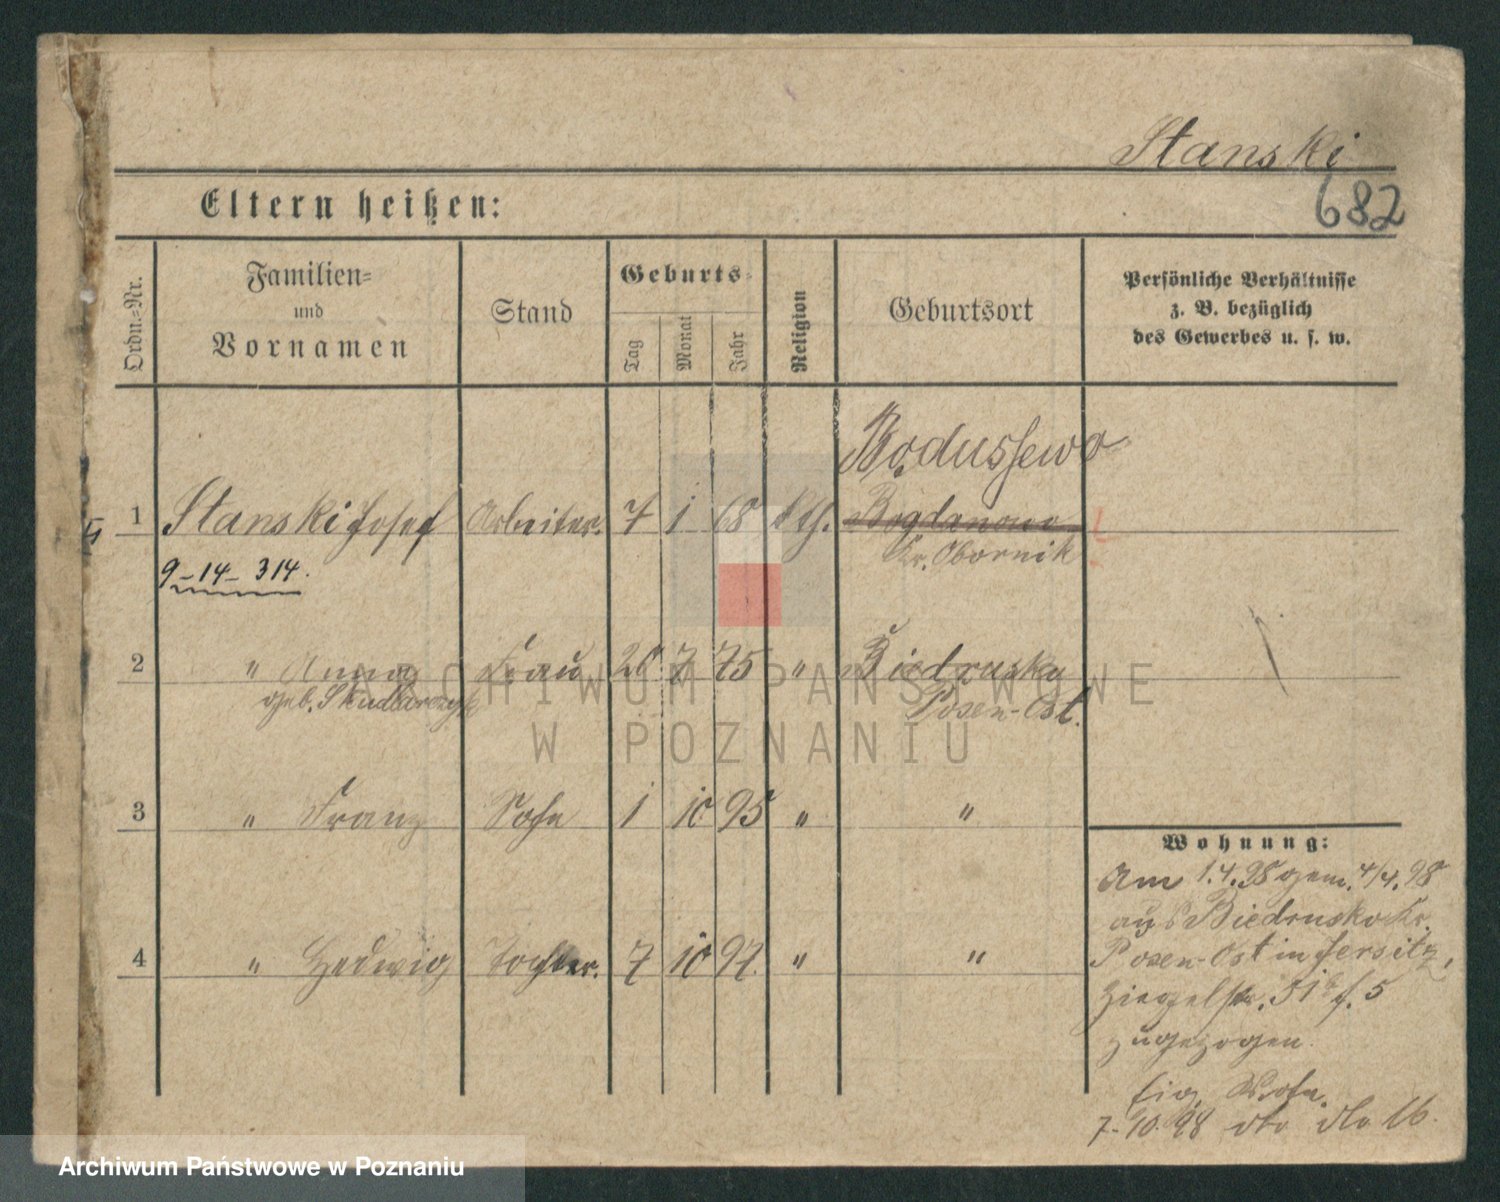 Stanski
682
Eltern heißen:
Ordn.=Nr.
Familien=
und
Vornamen
Stand
Geburts=
Tag
Monat
Jahr
Religion
Geburtsort
Persönliche Verhältnisse
z. B. bezüglich
des Gewerbes u. s. w.
Bodussewo
1 Stanski Josef Arbeiter. 7 1 68 kth. Bogdanowo
Kr. Obornik
9-14-314.
2 " Anna Frau 26 7 75 " Biedrusko
geb. Skudlarczyk Posen-Ost.
3 " Franz Sohn 1 10 95 " "
4 " Hedwig Tochter. 7 10 97. " "
Wohnung:
Am 1.4.98 gem. 4/4.98
aus Biedrusko Kr.
Posen-Ost in Jersitz,
Ziegelstr. 51 b. 5
zugezogen.
Eig. Wohn.
7.10.98 dto dto 16.
ARCHIWUM PAŃSTWOWE
W POZNANIU
Archiwum Państwowe w Poznaniu